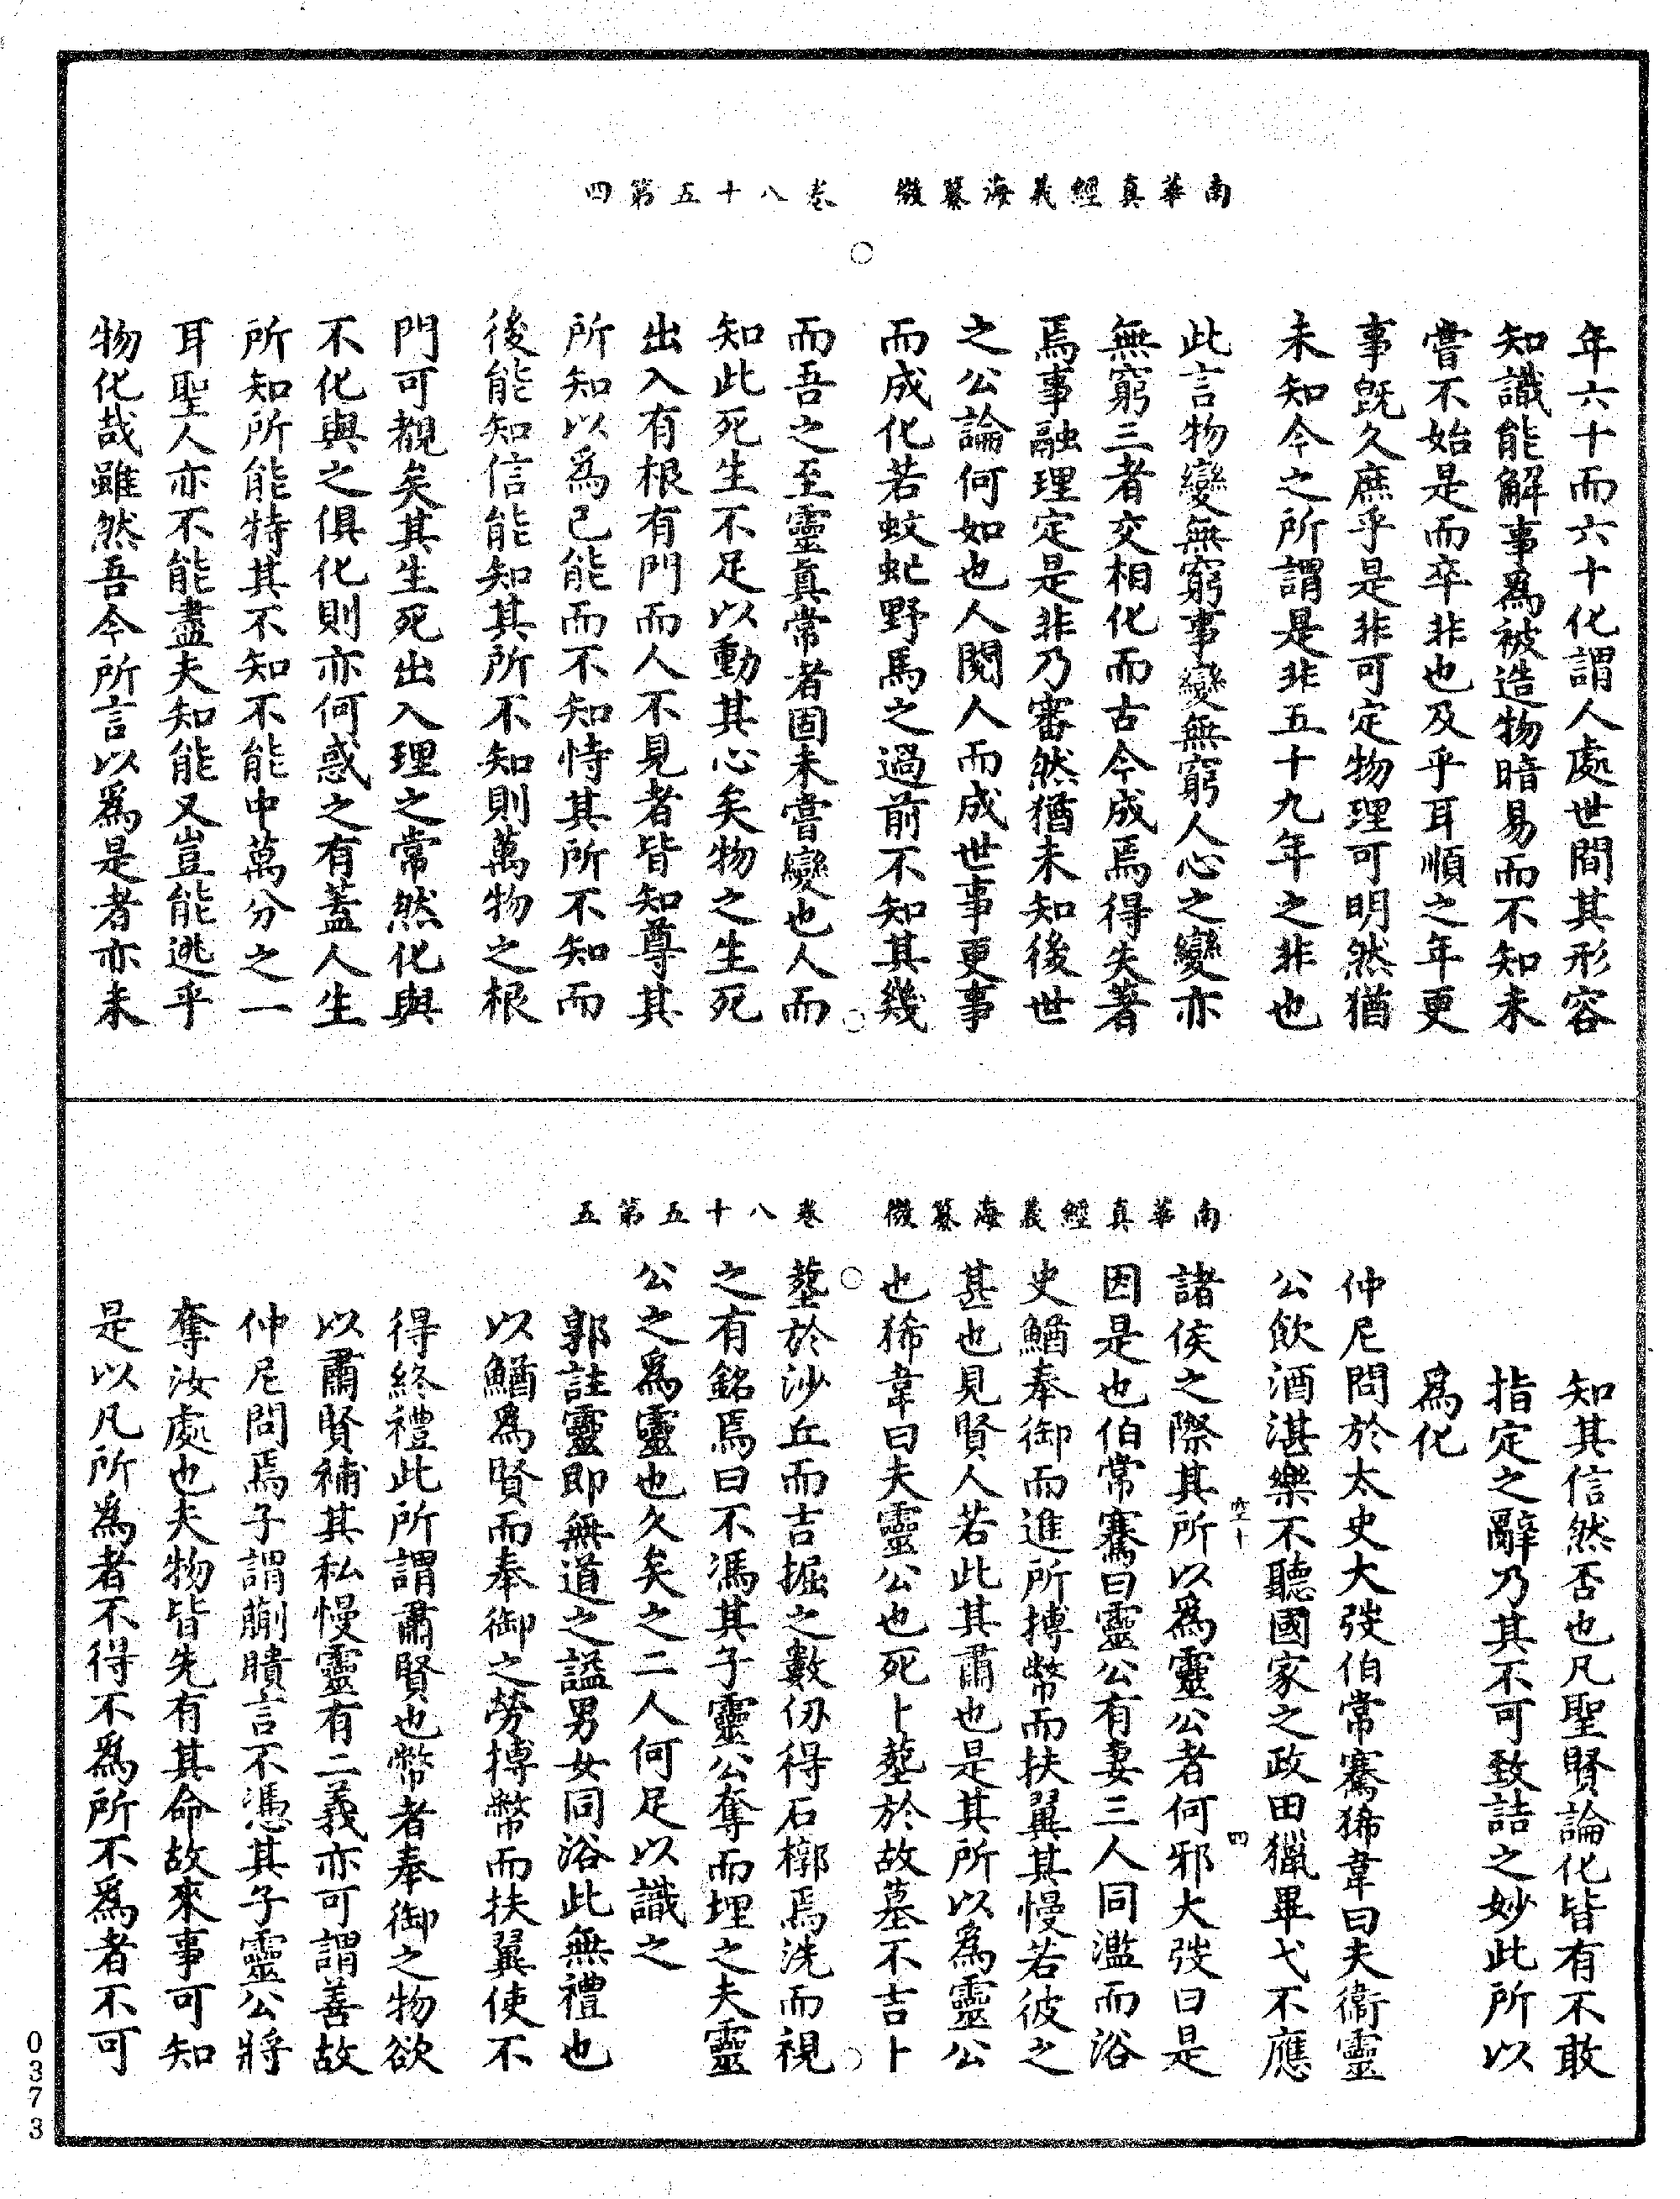 南華真經義海纂微　卷八十五第四
年六十而六十化謂人處世間其形容
知識能解事為被造物暗易而不知未
嘗不始是而卒非也及乎耳順之年更
事既久庶乎是非可定物理可明然猶
未知今之所謂是非五十九年之非也
此言物變無窮事變無窮人心之變亦
無窮三者交相化而古今成焉得失著
焉事融理定是非乃審然猶未知後世
之公論何如也人閱人而成世事更事
而成化若蚊虻野馬之過前不知其幾
而吾之至靈真常者固未嘗變也人而
知此死生不足以動其心矣物之生死
出入有根有門而人不見者皆知尊其
所知以為己能而不知恃其所不知而
後能知信能知其所不知則萬物之根
門可覩矣其生死出入理之常然化與
不化與之俱化則亦何惑之有蓋人生
所知所能特其不知不能中萬分之一
耳聖人亦不能盡夫知能又豈能逃乎
物化哉雖然吾今所言以為是者亦未
南華真經義海纂微　卷八十五第五
知其信然否也凡聖賢論化皆有不敢
指定之辭乃其不可致詰之妙此所以
為化
仲尼問於太史大弢伯常騫狶韋曰夫衛靈
公飲酒湛樂不聽國家之政田獵畢弋不應
諸侯之際其所以為靈公者何邪大弢曰是
因是也伯常騫曰靈公有妻三人同濫而浴
史鰌奉御而進所搏幣而扶翼其慢若彼之
甚也見賢人若此其肅也是其所以為靈公
也狶韋曰夫靈公也死卜葬於故墓不吉卜
葬於沙丘而吉掘之數仞得石槨焉洗而視
之有銘焉曰不馮其子靈公奪而埋之夫靈
公之為靈也久矣之二人何足以識之
郭註靈即無道之謚男女同浴此無禮也
以鰌為賢而奉御之勞搏幣而扶翼使不
得終禮此所謂肅賢也幣者奉御之物欲
以肅賢補其私慢靈有二義亦可謂善故
仲尼問焉子謂蒯聵言不馮其子靈公將
奪汝處也夫物皆先有其命故來事可知
是以凡所為者不得不為所不為者不可
0373